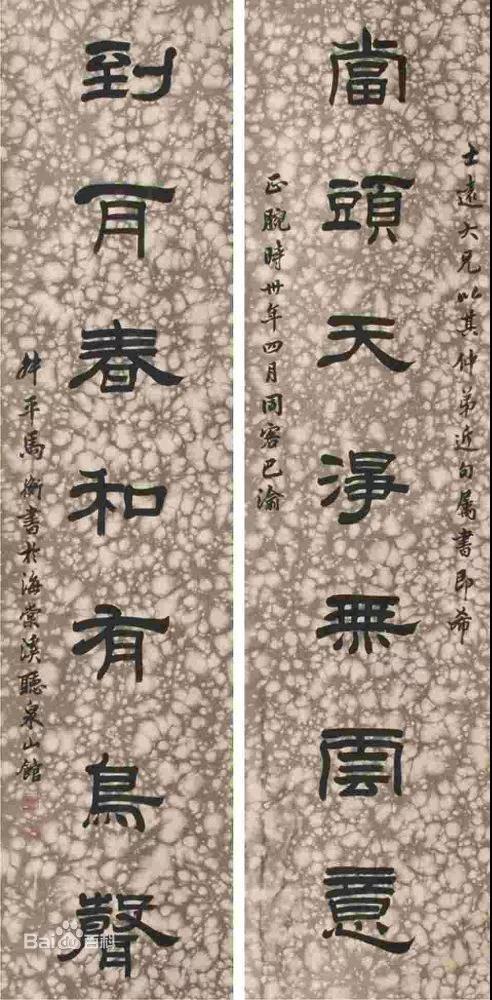 士遠大兄以其仲弟近句属書即希
當頭天淨無雲意
正腕時卅年四月同客巴渝
到耳春和有鳥聲
叔平馬衡書於海棠溪聽泉山館
Bai百科